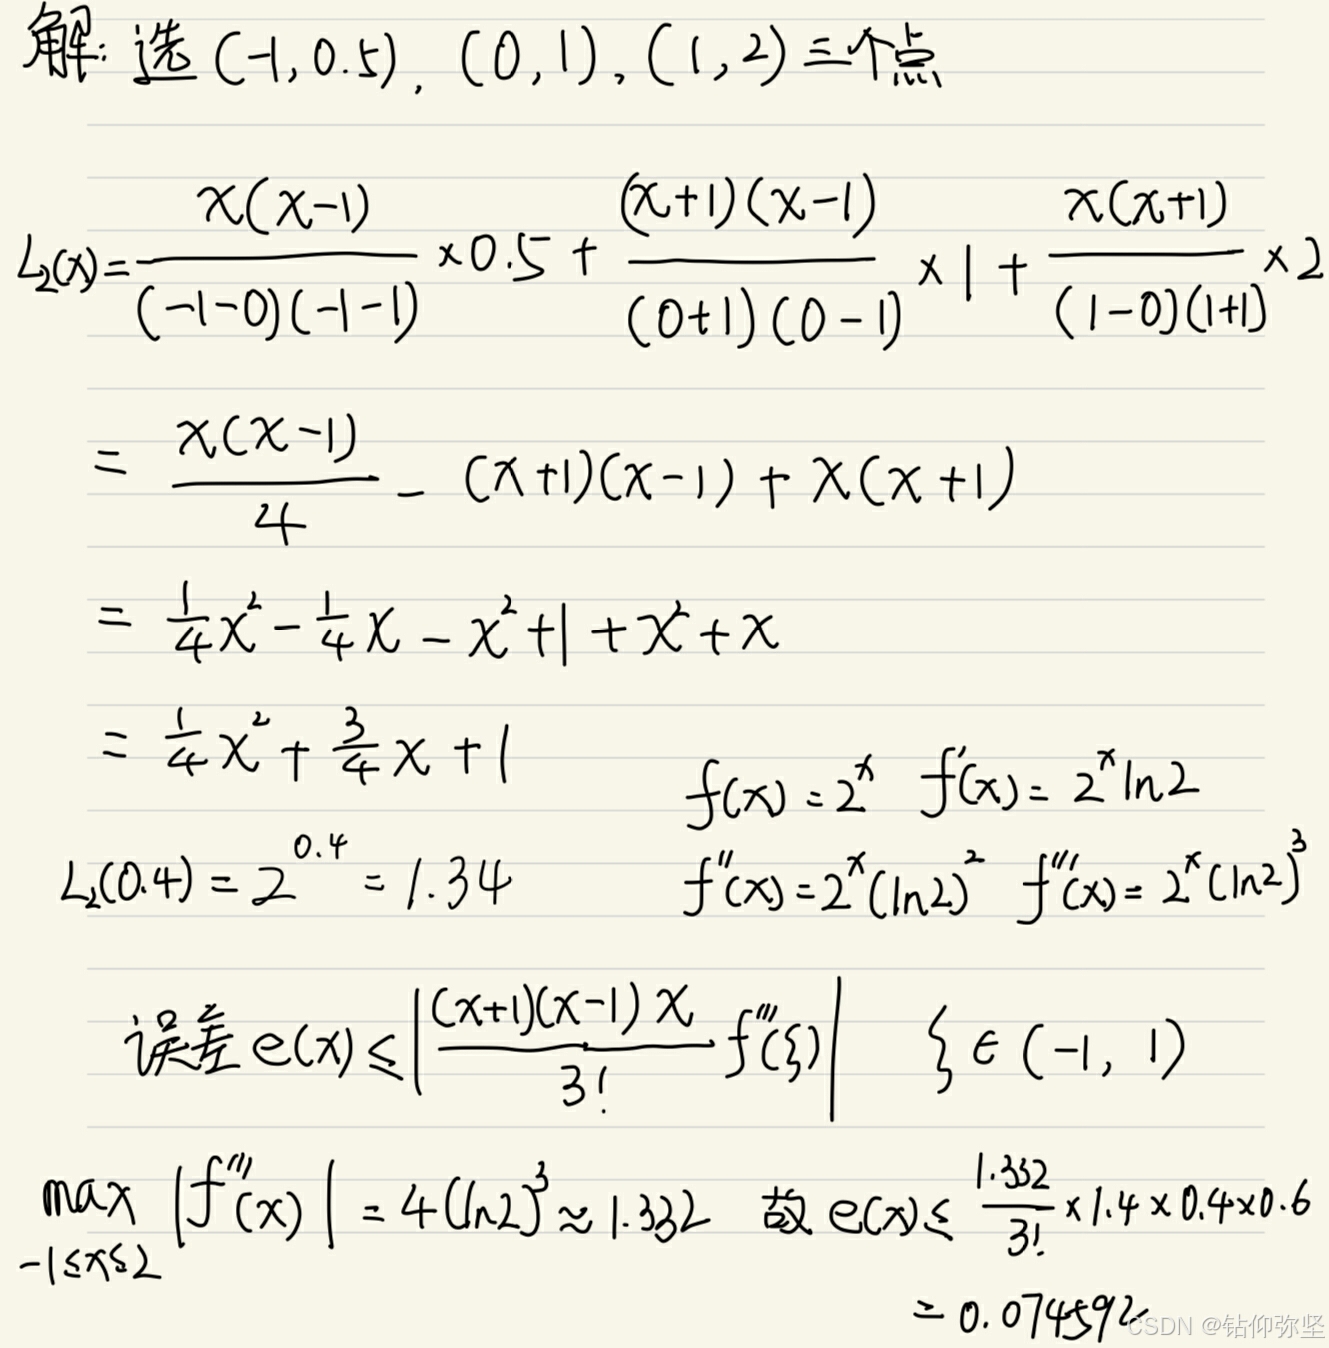 解: 选 (-1, 0.5), (0, 1), (1, 2) 三个点
L₂(x) = x(x-1)/(-1-0)(-1-1) ×0.5 + (x+1)(x-1)/(0+1)(0-1) ×1 + x(x+1)/(1-0)(1+1) ×2
= x(x-1)/4 - (x+1)(x-1) + x(x+1)
= 1/4 x² - 1/4 x - x² + 1 + x² + x
= 1/4 x² + 3/4 x + 1
f(x) = 2ˣ f'(x) = 2ˣ ln2
L₂(0.4) = 2^0.4 = 1.34 f''(x) = 2ˣ(ln2)² f'''(x) = 2ˣ(ln2)³
误差 e(x) ≤ |(x+1)(x-1)x/3! f'''(ξ)| ξ ∈ (-1, 1)
max |f'''(x)| = 4(ln2)³ ≈ 1.332 故 e(x) ≤ 1.332/3! × 1.4 × 0.4 × 0.6
-1≤x≤2
= 0.074592
CSDN @钻仰弥坚